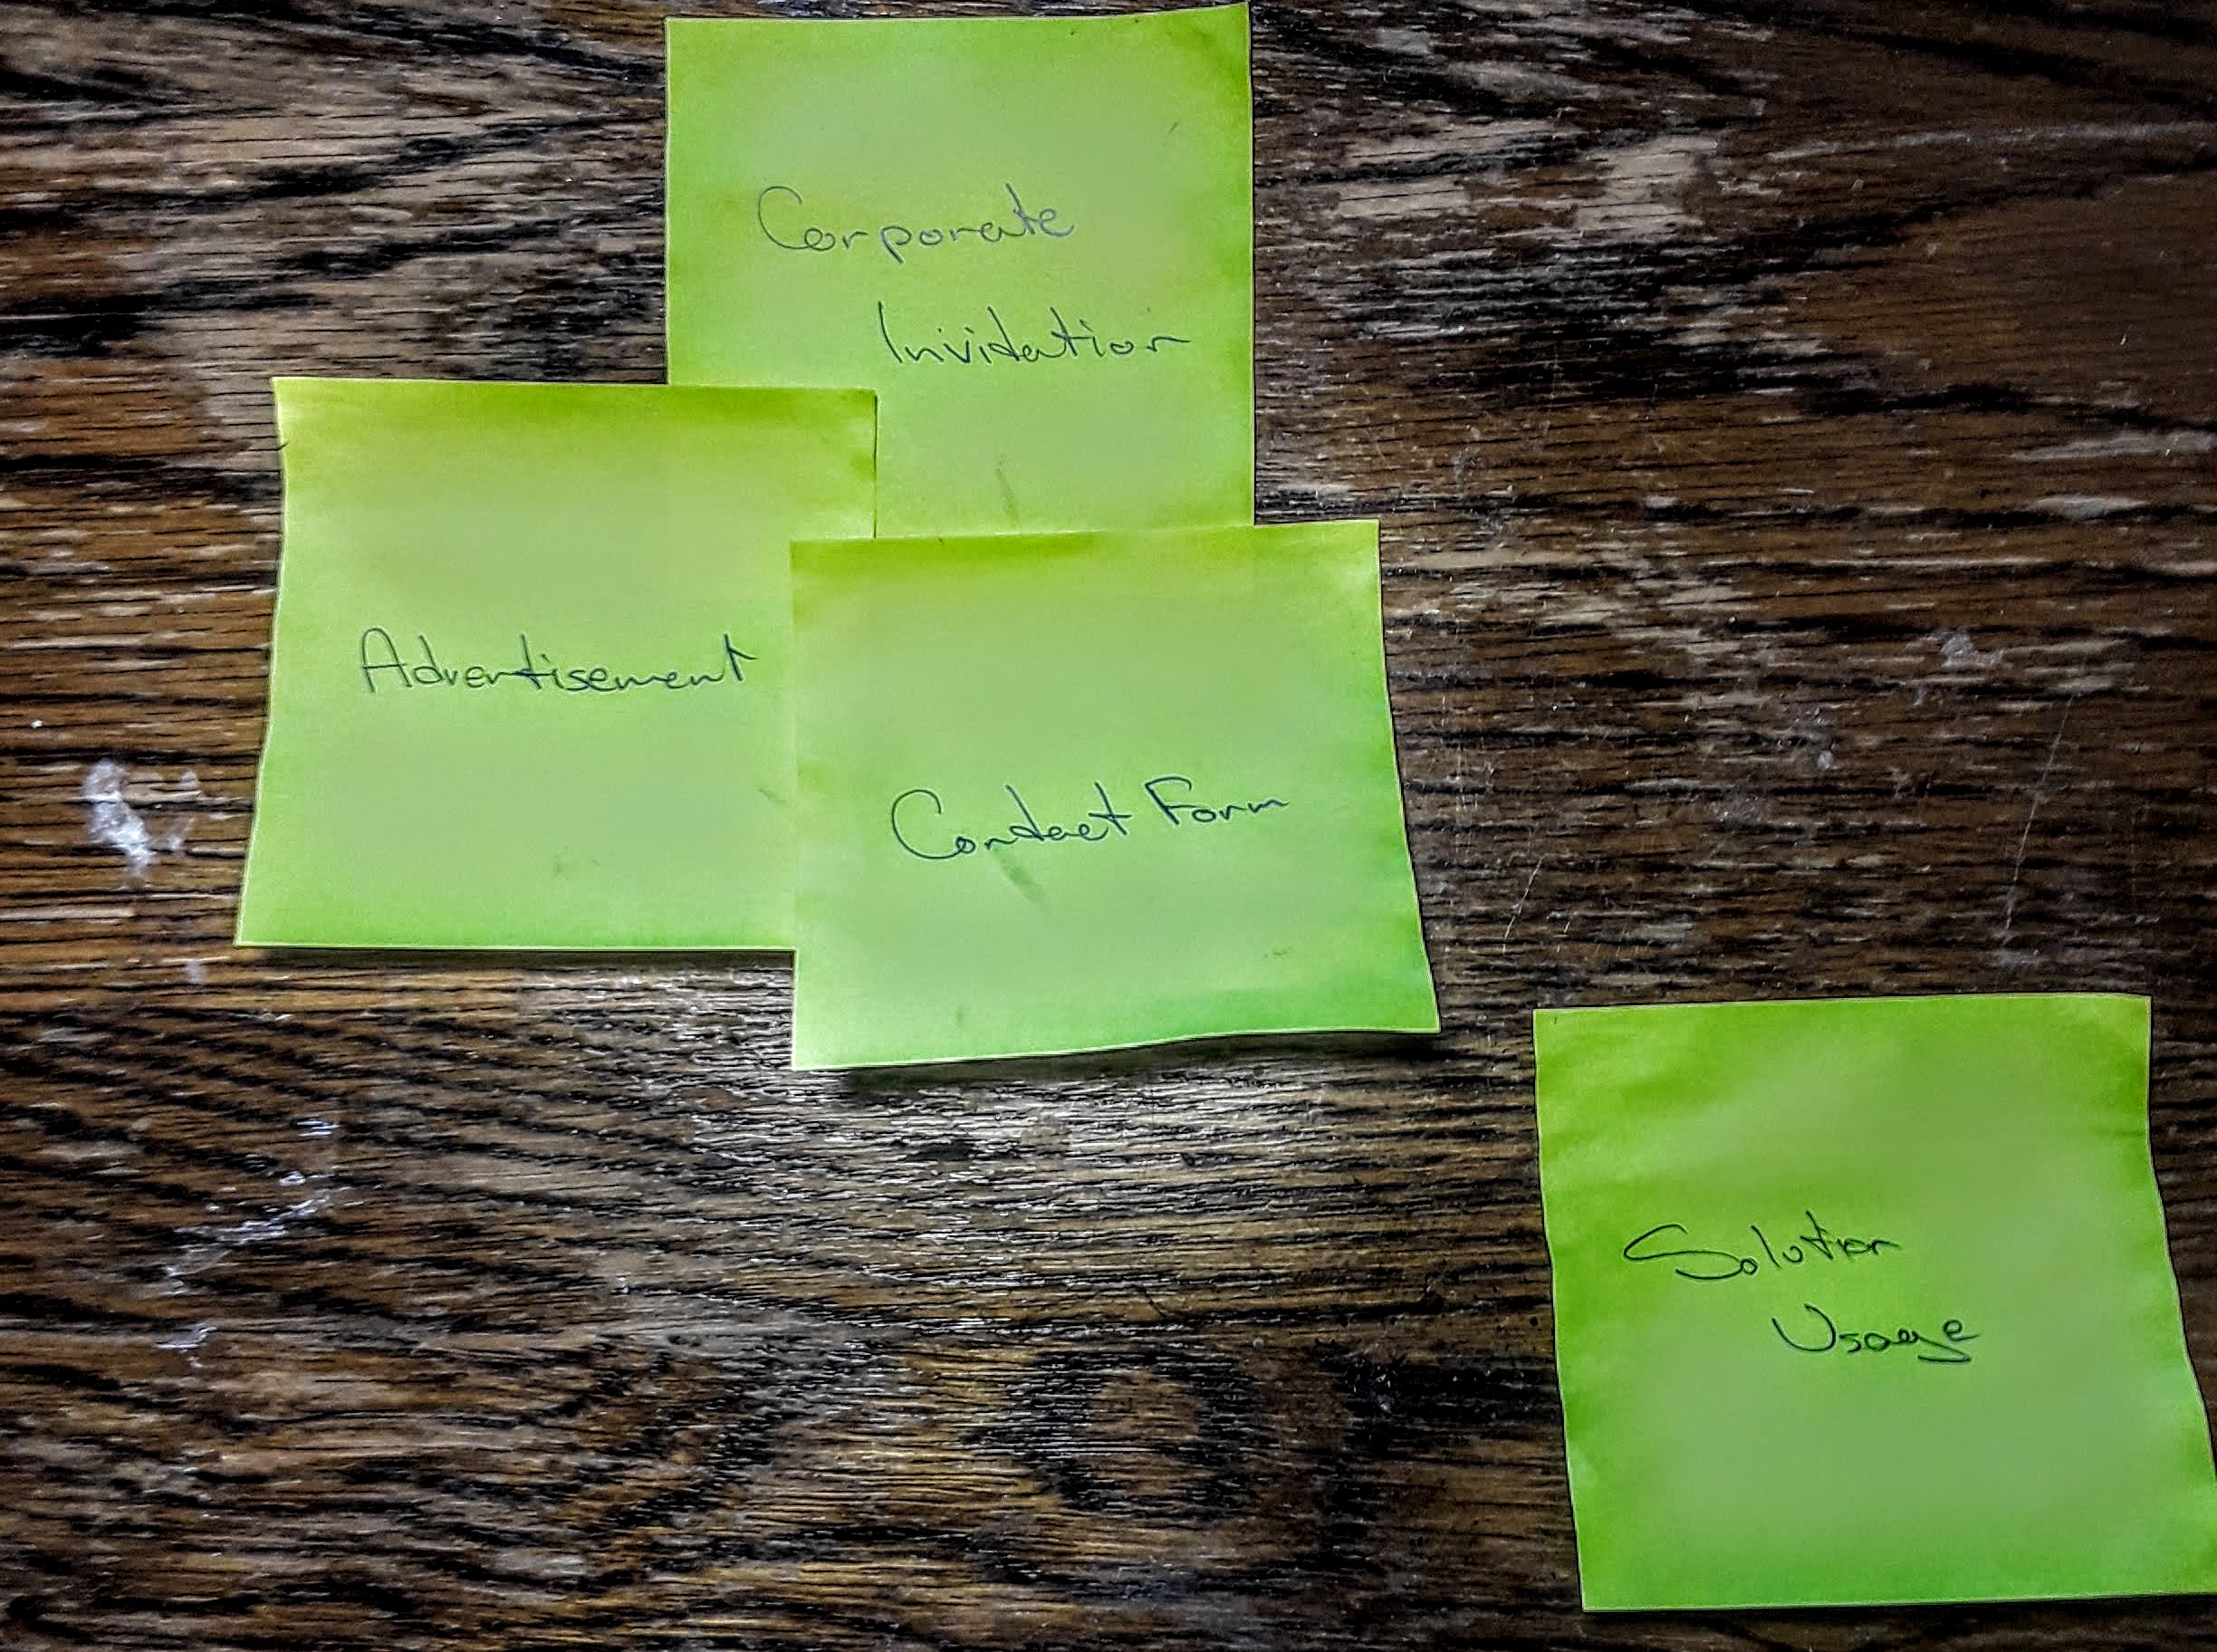 Corporate
Invidation
Advertisement
Contact Form
Solution
Usage